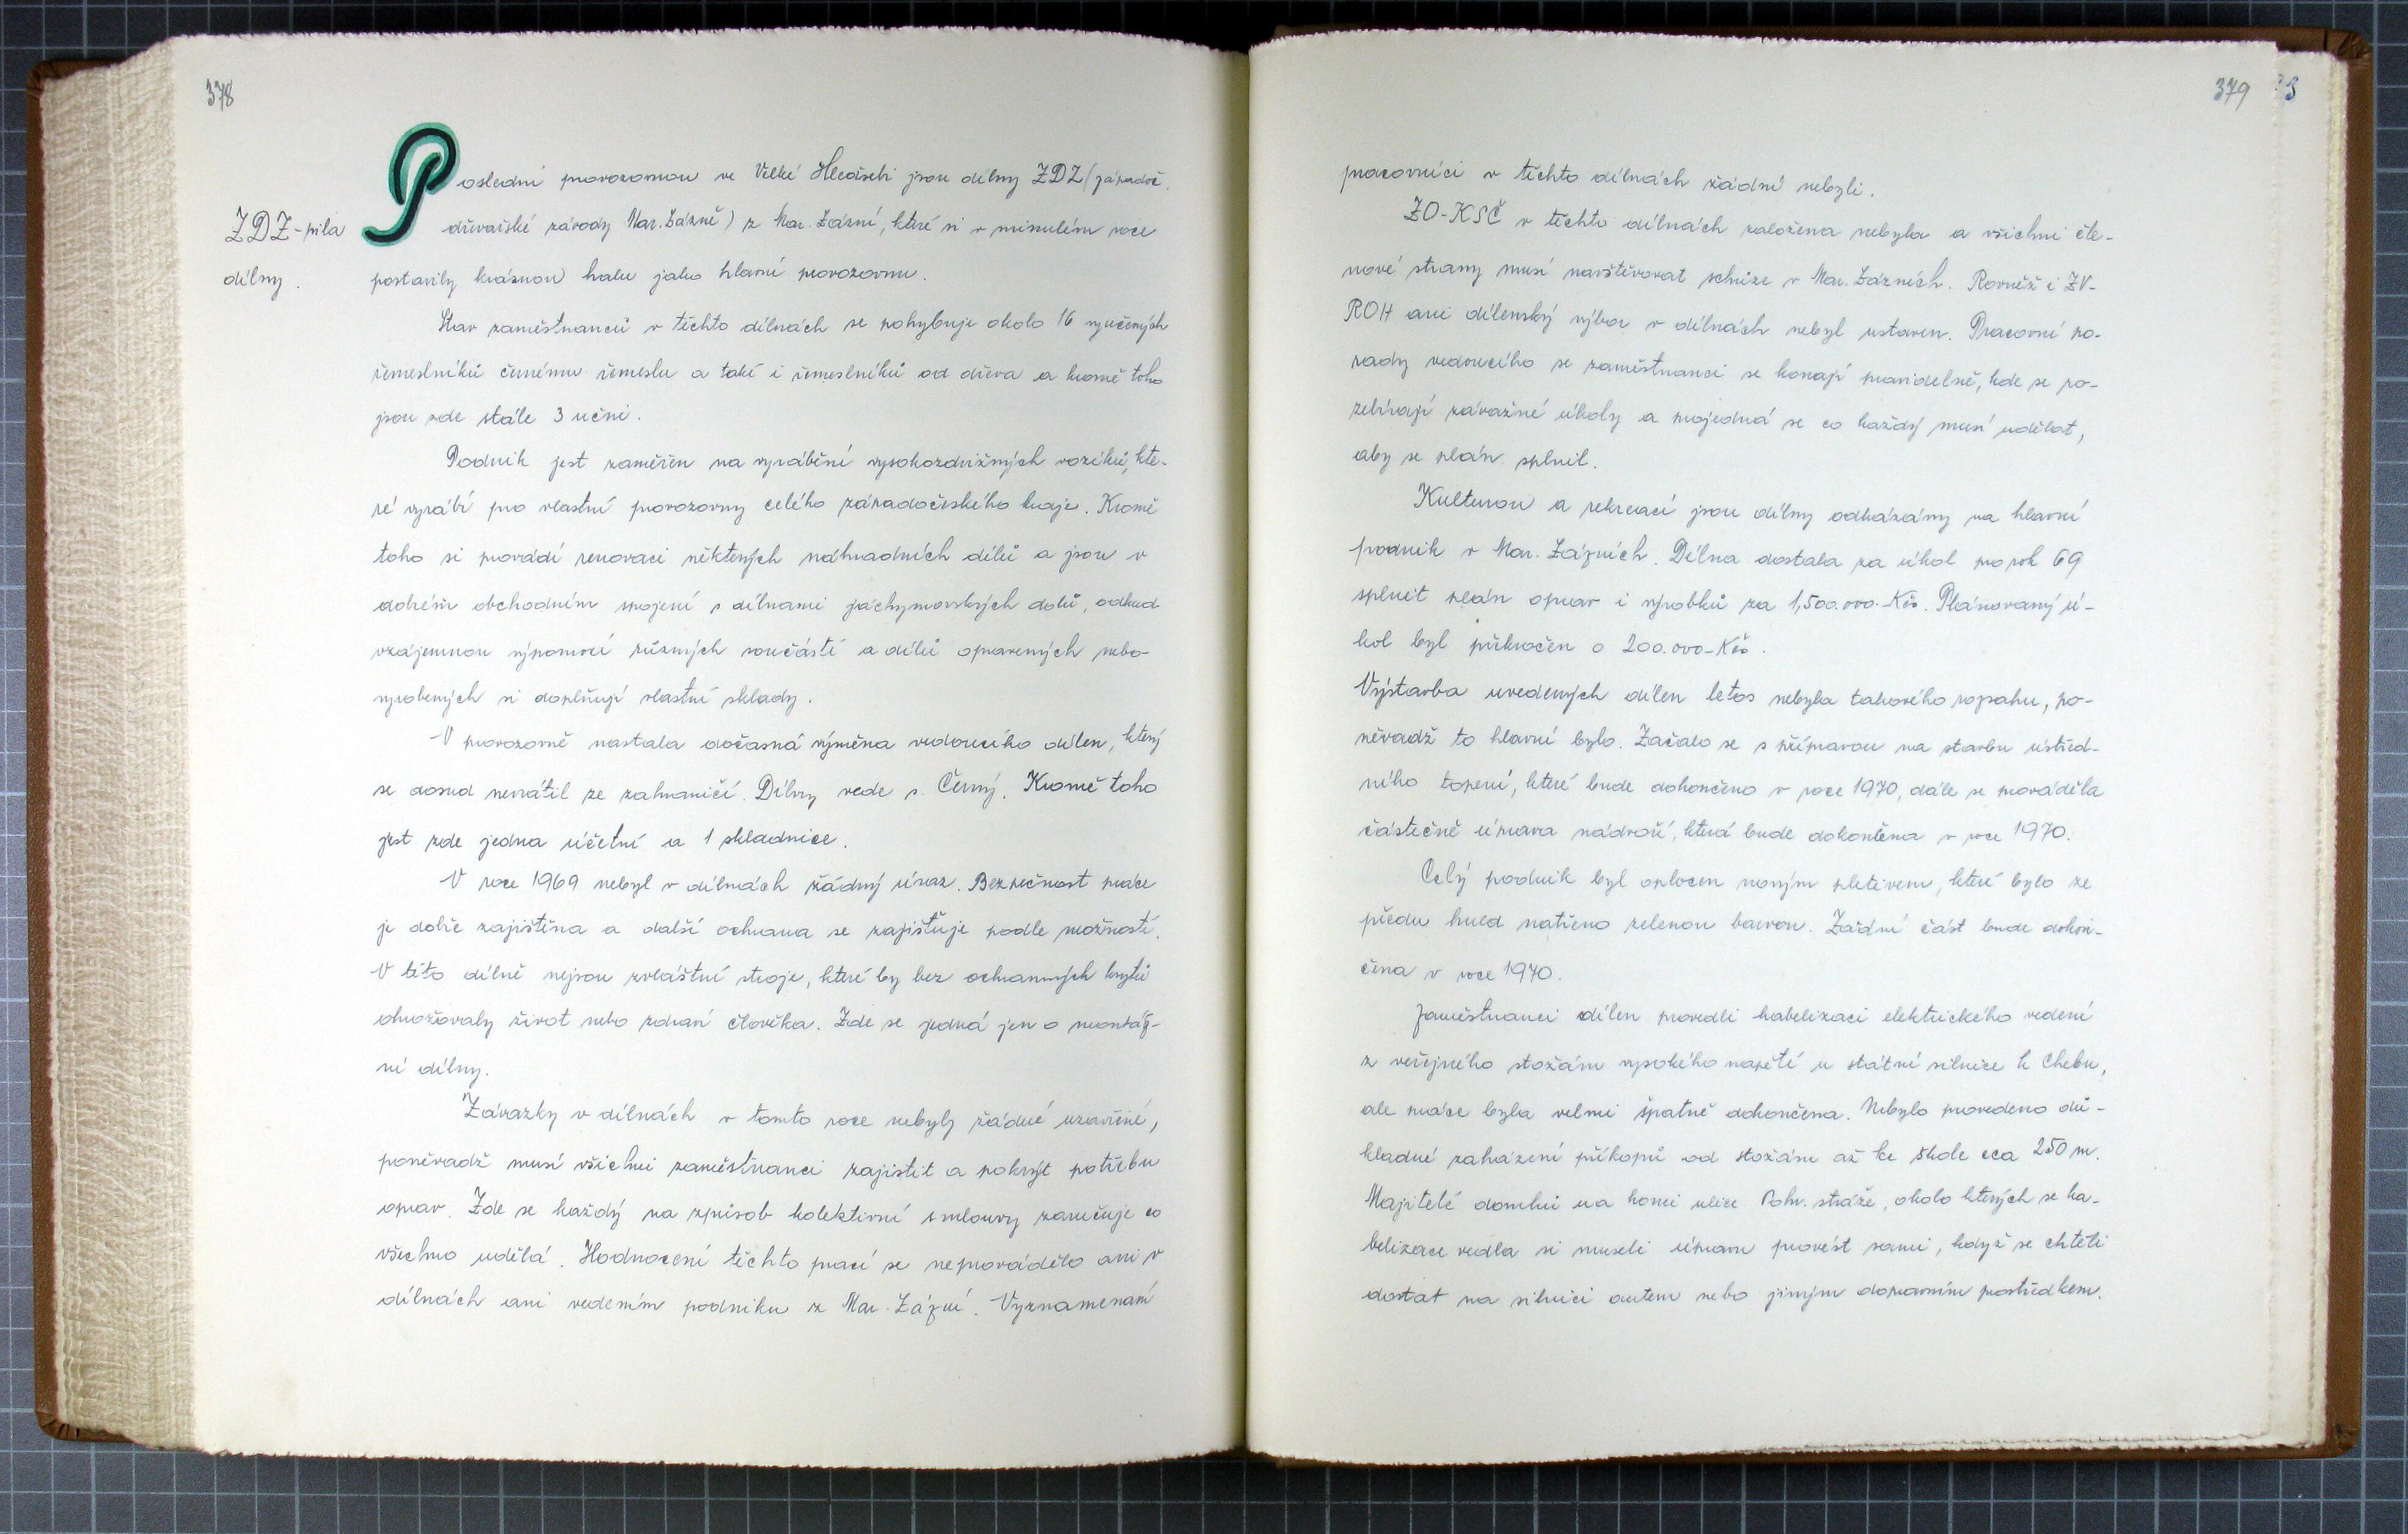 378
Poslední provozovnou ve Velké Hleďsebi jsou dílny ZDZ (západoč.
ZDZ-pila
dřevařské závody Mar. Lázně) z Mar. Lázní, které si v minulém roce
dílny.
postavily krásnou halu jako hlavní provozovnu.
Stav zaměstnanců v těchto dílnách se pohybuje okolo 16 vyučených
řemeslníků černému řemeslu a také i řemeslníků od dřeva a kromě toho
jsou zde stále 3 učni.
Podnik jest zaměřen na vyrábění vysokozdvižných vozíků, kte-
ré vyrábí pro vlastní provozovny celého západočeského kraje. Kromě
toho si provádí renovaci některých náhradních dílů a jsou v
dobrém obchodním spojení s dílnami jáchymovských dolů, odkud
vzájemnou výpomocí různých součástí a dílů opravených nebo
vyrobených si doplňují vlastní sklady.
V provozovně nastala dočasná výměna vedoucího dílen, který
se dosud nevrátil ze zahraničí. Dílny vede s. Černý. Kromě toho
jest zde jedna účetní a 1 skladnice.
V roce 1969 nebyl v dílnách žádný úraz. Bezpečnost práce
je dobře zajištěna a další ochrana se zajišťuje podle možností.
V této dílně nejsou zvláštní stroje, které by bez ochranných krytů
ohrožovaly život nebo zdraví člověka. Zde se jedná jen o montáž-
ní dílny.
Závazky v dílnách v tomto roce nebyly žádné uzavřené,
poněvadž musí všichni zaměstnanci zajistit a pokrýt potřebu
oprav. Zde se každý na způsob kolektivní smlouvy zaručuje co
všechno udělá. Hodnocení těchto prací se neprovádělo ani v
dílnách ani vedením podniku z Mar. Lázní. Vyznamenaní
379
pracovníci v těchto dílnách žádní nebyli.
ZO-KSČ v těchto dílnách založena nebyla a všichni čle-
nové strany musí navštěvovat schůze v Mar. Lázních. Rovněž i ZV-
ROH ani dílenský výbor v dílnách nebyl ustaven. Pracovní po-
rady vedoucího se zaměstnanci se konají pravidelně, kde se ro-
zebírají závažné úkoly a projedná se co každý musí udělat,
aby se plán splnil.
Kulturou a rekreací jsou dílny odkázány na hlavní
podnik v Mar. Lázních. Dílna dostala za úkol pro rok 69
splnit plán oprav i výrobků za 1,500.000.-Kčs. Plánovaný ú-
kol byl překročen o 200.000-Kčs.
Výstavba uvedených dílen letos nebyla takového rozsahu, po-
něvadž to hlavní bylo. Začalo se s přípravou na stavbu ústřed-
ního topení, které bude dokončeno v roce 1970, dále se prováděla
částečně úprava nádvoří, která bude dokončena v roce 1970.
Celý podnik byl oplocen novým pletivem, které bylo ze
předu hned natřeno zelenou barvou. Zadní část bude dokon-
čena v roce 1970.
Zaměstnanci dílen provedli kabelizaci elektrického vedení
z veřejného stožáru vysokého napětí u státní silnice k Chebu,
ale práce byla velmi špatně dokončena. Nebylo provedeno dů-
kladné zaházení příkopů od stožáru až ke škole cca 250 m.
Majitelé domků na konci ulice Pohr. stráže, okolo kterých se ka-
belizace vedla si museli úpravu provést sami, když se chtěli
dostat na silnici autem nebo jiným dopravním prostředkem.